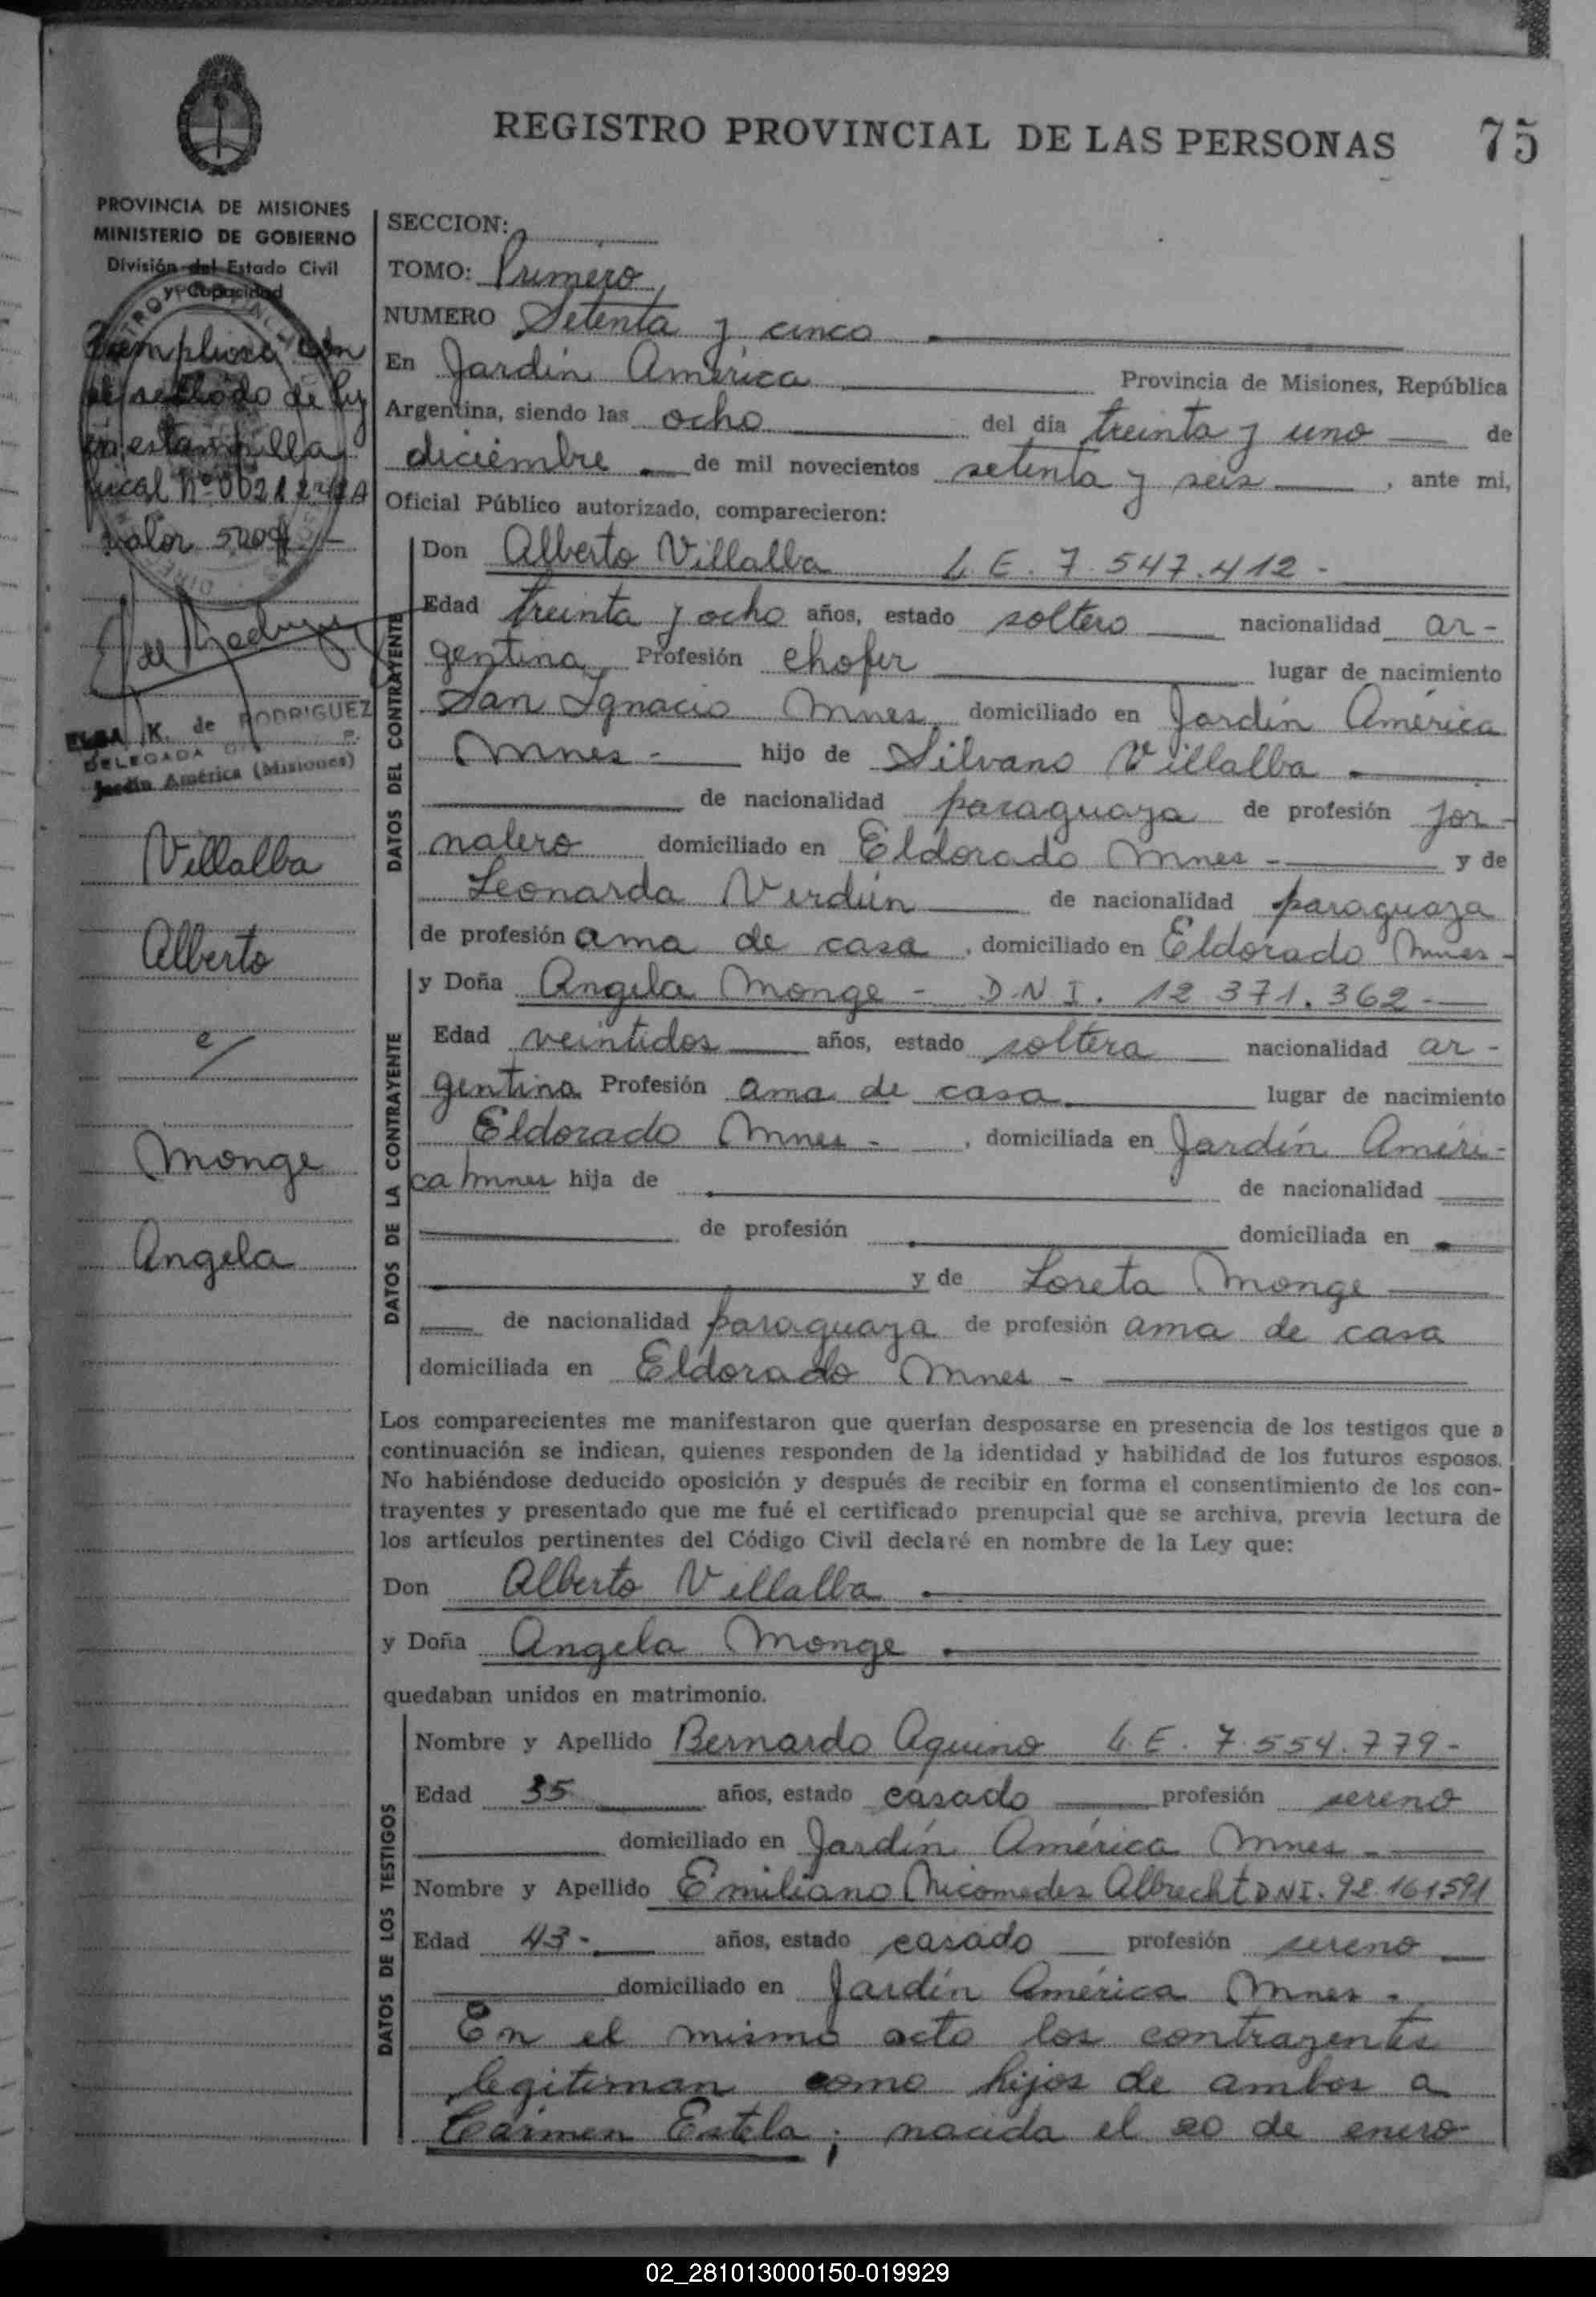 REGISTRO PROVINCIAL DE LAS PERSONAS 75
PROVINCIA DE MISIONES
MINISTERIO DE GOBIERNO
División del Estado Civil
y Capacidad
en estampilla
fiscal Nº
valor 500
ELBA K. de RODRIGUEZ
DELEGADA
Jardín América (Misiones)
Villalba
Alberto
c/
Monge
Angela
SECCION:
TOMO: Primero
NUMERO Setenta y cinco
En Jardín América Provincia de Misiones, República
Argentina, siendo las ocho del día treinta y uno de
diciembre de mil novecientos setenta y seis, ante mi,
Oficial Público autorizado, comparecieron:
DATOS DEL CONTRAYENTE
Don Alberto Villalba L.E. 7.547.412-
Edad treinta y ocho años, estado soltero nacionalidad ar-
gentina Profesión chofer lugar de nacimiento
San Ignacio Mnes domiciliado en Jardín América
Mnes- hijo de Silvano Villalba
de nacionalidad paraguaya de profesión jor-
nalero domiciliado en Eldorado Mnes- y de
Leonarda Verdún de nacionalidad paraguaya
de profesión ama de casa, domiciliado en Eldorado Mnes-
DATOS DE LA CONTRAYENTE
y Doña Angela Monge - D.N.I. 12 371.362-
Edad veintidos años, estado soltera nacionalidad ar-
gentina Profesión ama de casa lugar de nacimiento
Eldorado Mnes-, domiciliada en Jardín Améri-
ca Mnes hija de de nacionalidad
de profesión domiciliada en
y de Loreta Monge
de nacionalidad paraguaya de profesión ama de casa
domiciliada en Eldorado Mnes-
Los comparecientes me manifestaron que querían desposarse en presencia de los testigos que a
continuación se indican, quienes responden de la identidad y habilidad de los futuros esposos.
No habiéndose deducido oposición y después de recibir en forma el consentimiento de los con-
trayentes y presentado que me fué el certificado prenupcial que se archiva, previa lectura de
los artículos pertinentes del Código Civil declaré en nombre de la Ley que:
Don Alberto Villalba
y Doña Angela Monge
quedaban unidos en matrimonio.
DATOS DE LOS TESTIGOS
Nombre y Apellido Bernardo Aquino L.E. 7.554.779-
Edad 35 años, estado casado profesión sereno
domiciliado en Jardín América Mnes-
Nombre y Apellido Emiliano Nicomedes Albrecht D.N.I. 92.161591
Edad 43- años, estado casado profesión sereno
domiciliado en Jardín América Mnes.
En el mismo acto los contrayentes
legitiman como hijos de ambos a
Carmen Estela; nacida el 20 de enero
02_281013000150-019929